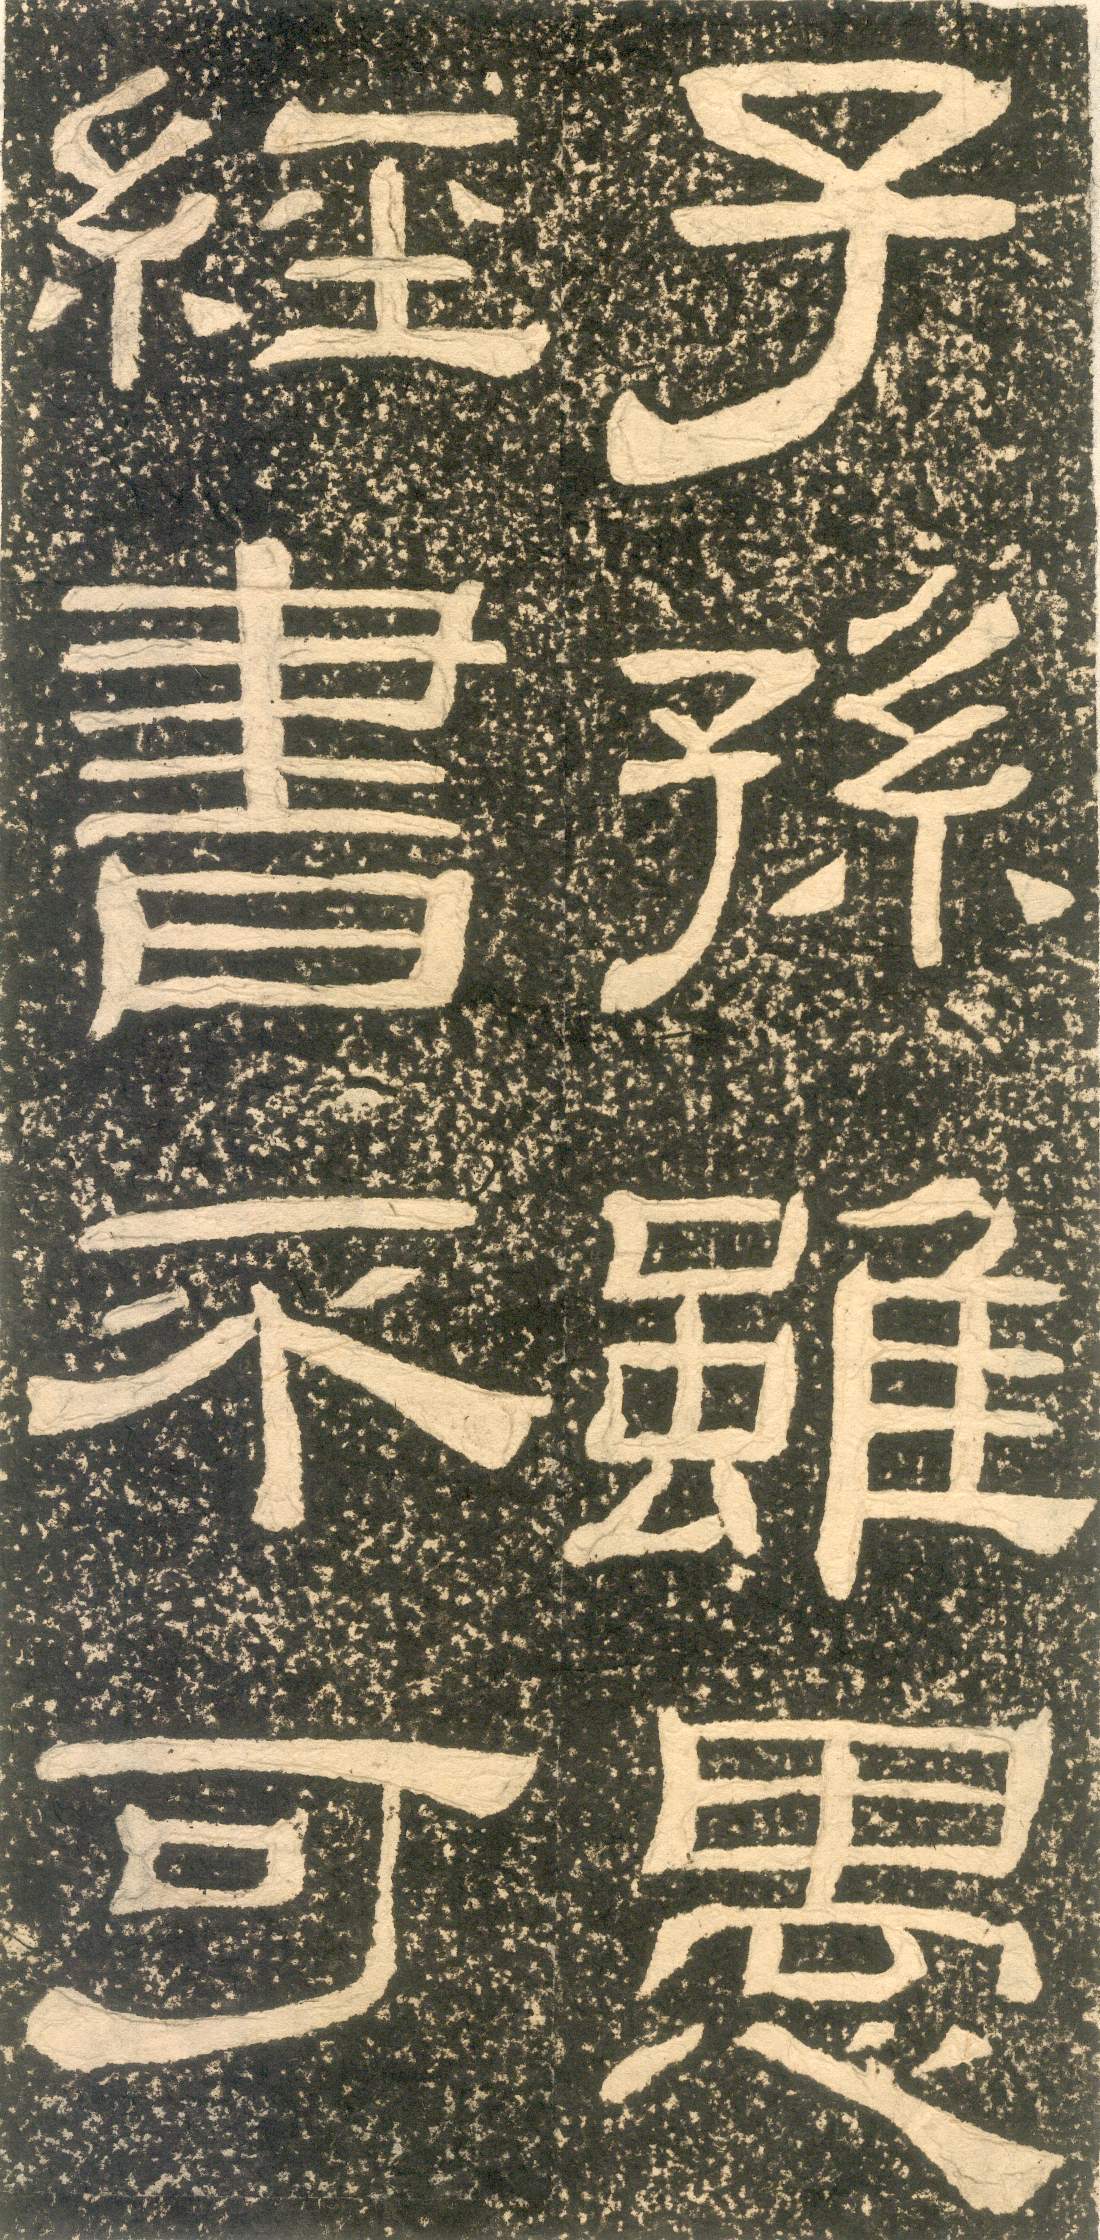 子孫雖愚
經書不可